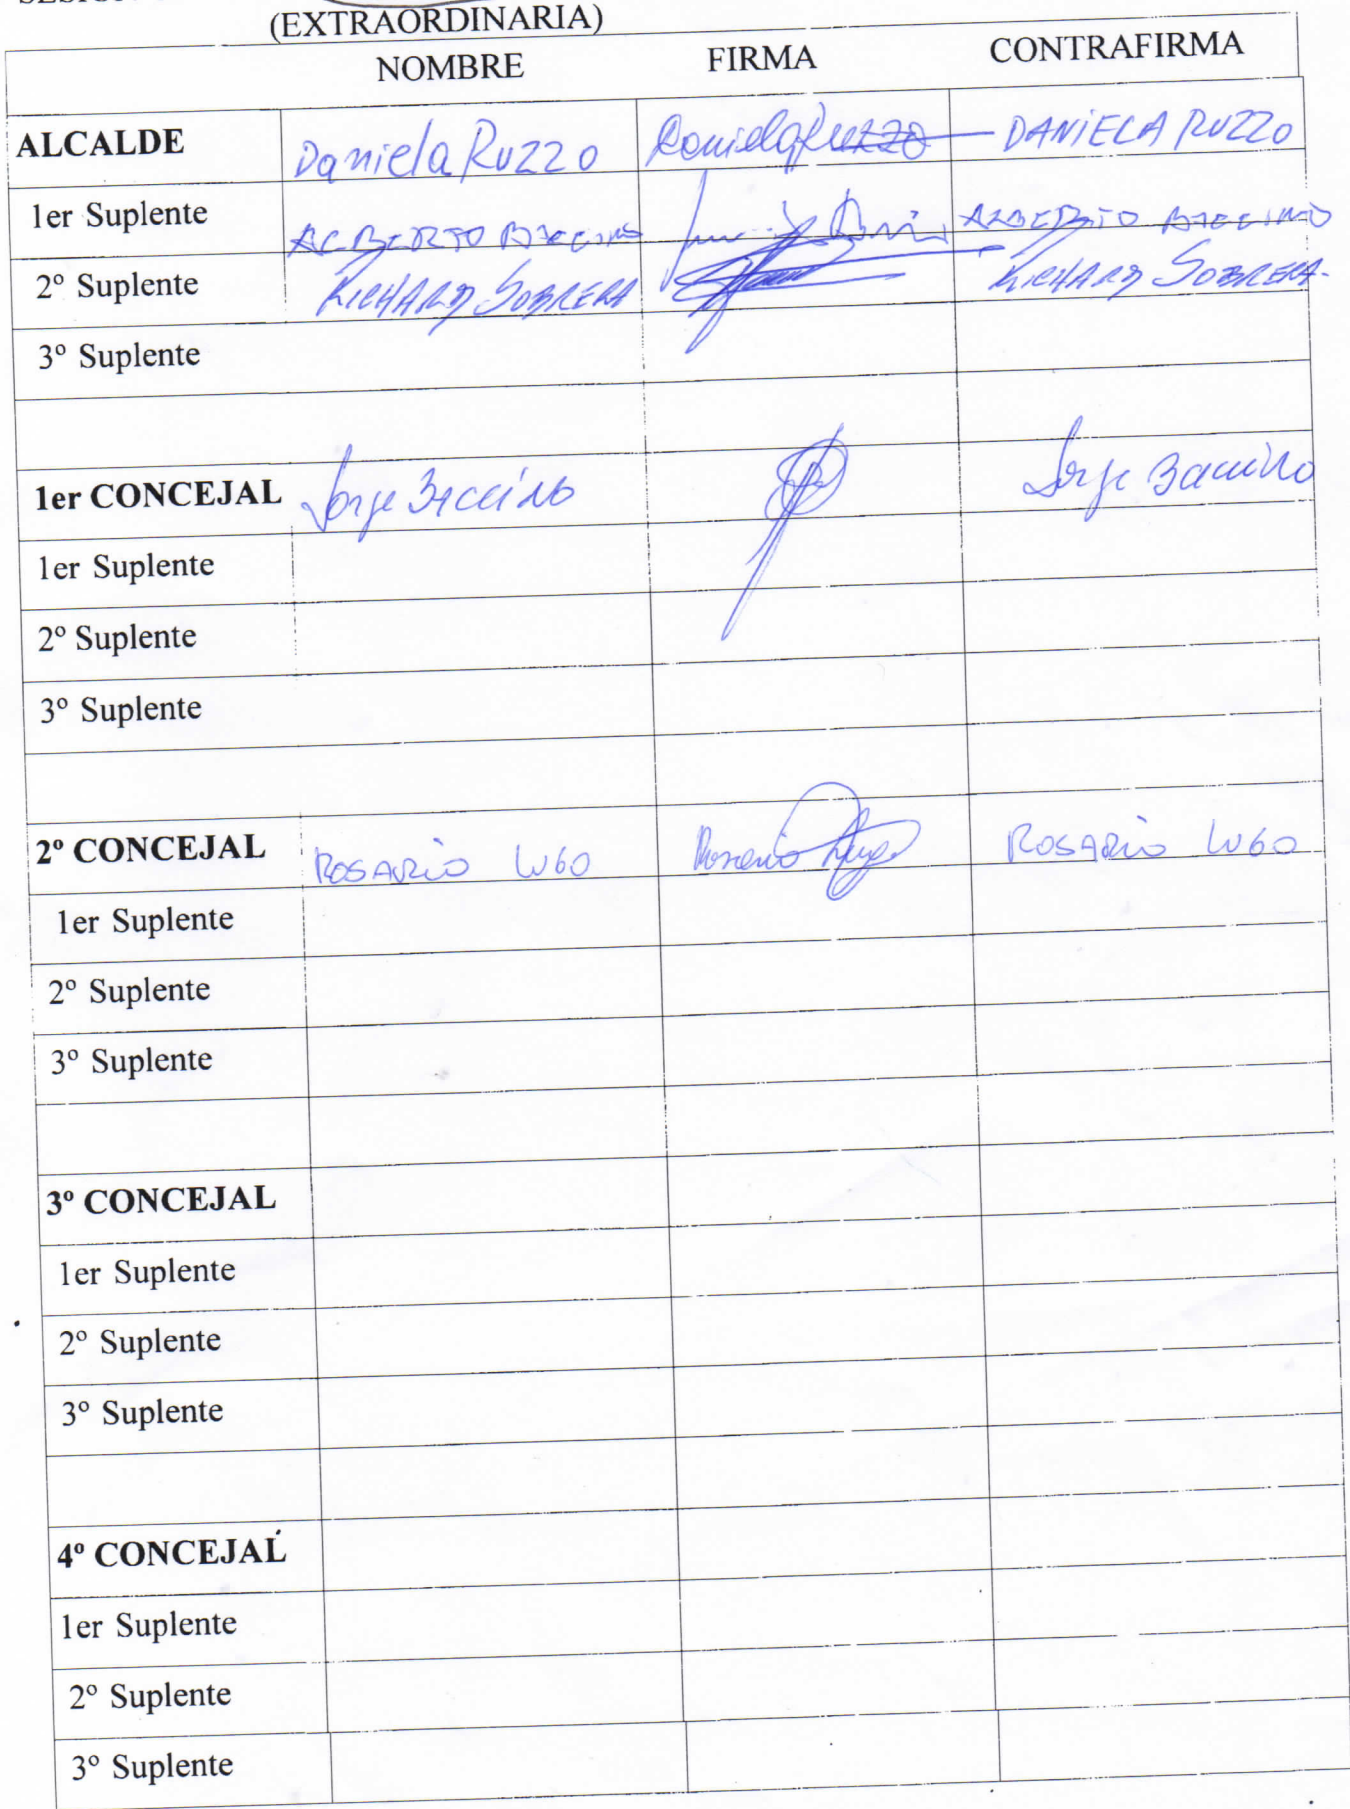 (EXTRAORDINARIA)
NOMBRE FIRMA CONTRAFIRMA
ALCALDE Daniela Ruzzo Daniela Ruzzo DANIELA RUZZO
1er Suplente ALBERTO ALBERTO
2º Suplente RICHARD SOBRERA RICHARD SOBRERA-
3º Suplente
1er CONCEJAL Jorge Baccino Jorge Baccino
1er Suplente
2º Suplente
3º Suplente
2º CONCEJAL ROSARIO LUGO Rosario Lugo ROSARIO LUGO
1er Suplente
2º Suplente
3º Suplente
3º CONCEJAL
1er Suplente
2º Suplente
3º Suplente
4º CONCEJAL
1er Suplente
2º Suplente
3º Suplente